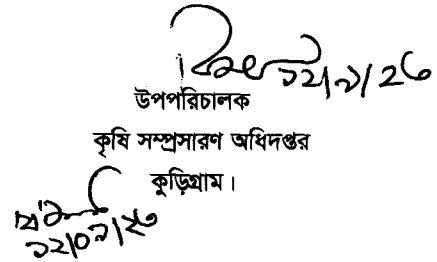 ১২/৯/২৩
উপপরিচালক
কৃষি সম্প্রসারণ অধিদপ্তর
কুড়িগ্রাম।
১২/০৯/২৩